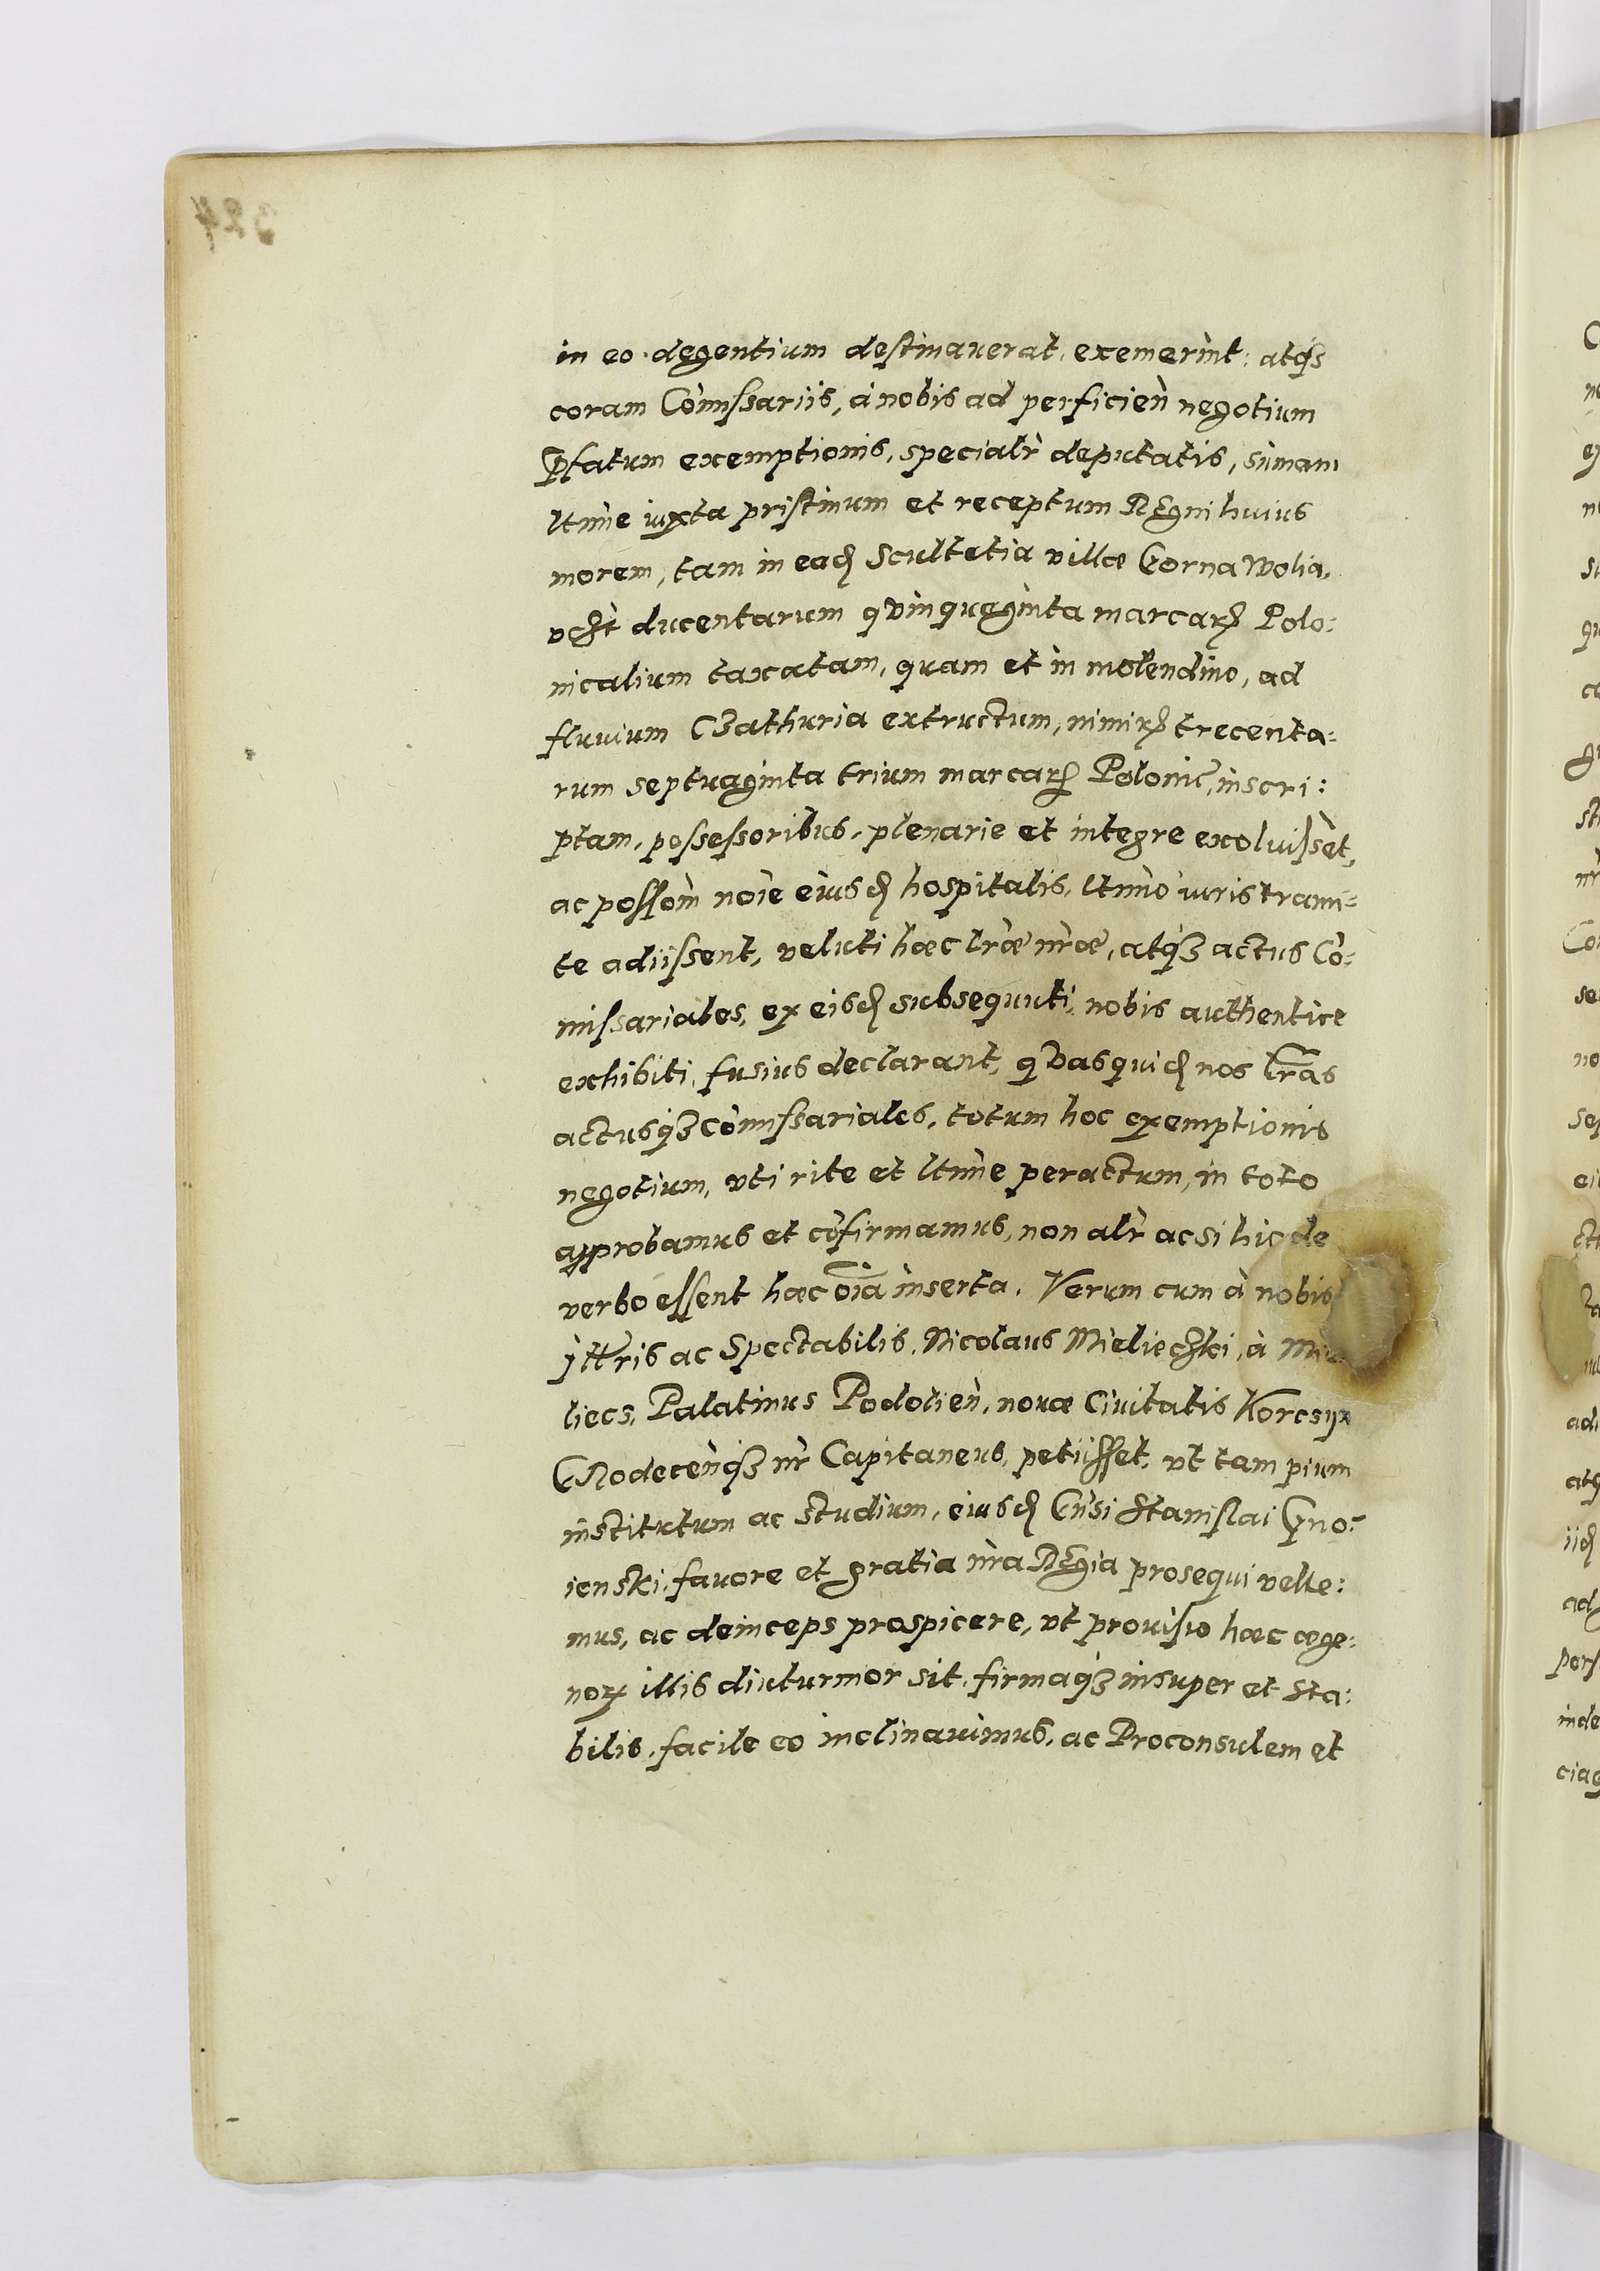 in eo degentium destinauerat, exemerint: atq3
coram Cōmissariis, à nobis ad perficien̄ negotium
Pfatum exemptionis, specialr̄ deputatis, sūmam
ltīme iuxta pristinum et receptum Regni huius
morem, tam in ead Scultetia villæ Gorna Wolia,
vcȝt ducentarum qvinquaginta marcarꝝ Polo:
nicalium taxatam, quam et in molendino, ad
fluvium Czathuria extructum, nimirꝝ trecenta:
rum septuaginta trium marcarꝝ Polonic̄, inscri:
ptam, possessoribus, plenarie et integre exoluissēt,
ac possom̄ noīe eiusd hospitalis, ltīmo iuris trami:
te adiissent, veluti hæc lr̄æ nr̄æ, atq3 actus Cō:
missariales, ex eisd subsequuti, nobis authentice
exhibiti, fusius declarant, qvasquid nos lr̄as
actusq3 cōmissariales, totum hoc exemptionis
negotium, vti rite et ltīme peractum, in toto
approbamus et cōfirmamus, non alr̄ ac si hic de
verbo essent hæc oīa inserta. Verum cum à nobis
Jllris ac Spectabilis, Nicolaus Mieliecȝki, à Mie
liecs, Palatinus Podolien̄, nouæ Ciuitatis Korcsyn
Grodecen̄q3 nr̄ Capitaneus, petiisset, vt tam pium
institutum ac studium, eiusd Gn̄si Stanislai Gno:
ienski, fauore et gratia nr̄a Regia prosequi velle:
mus, ac deinceps prospicere, vt prouisio hæc æge:
norꝝ illis diuturnior sit, firmaq3 insuper et sta:
bilis, facile eo inclinauimus, ac Proconsulem et
324